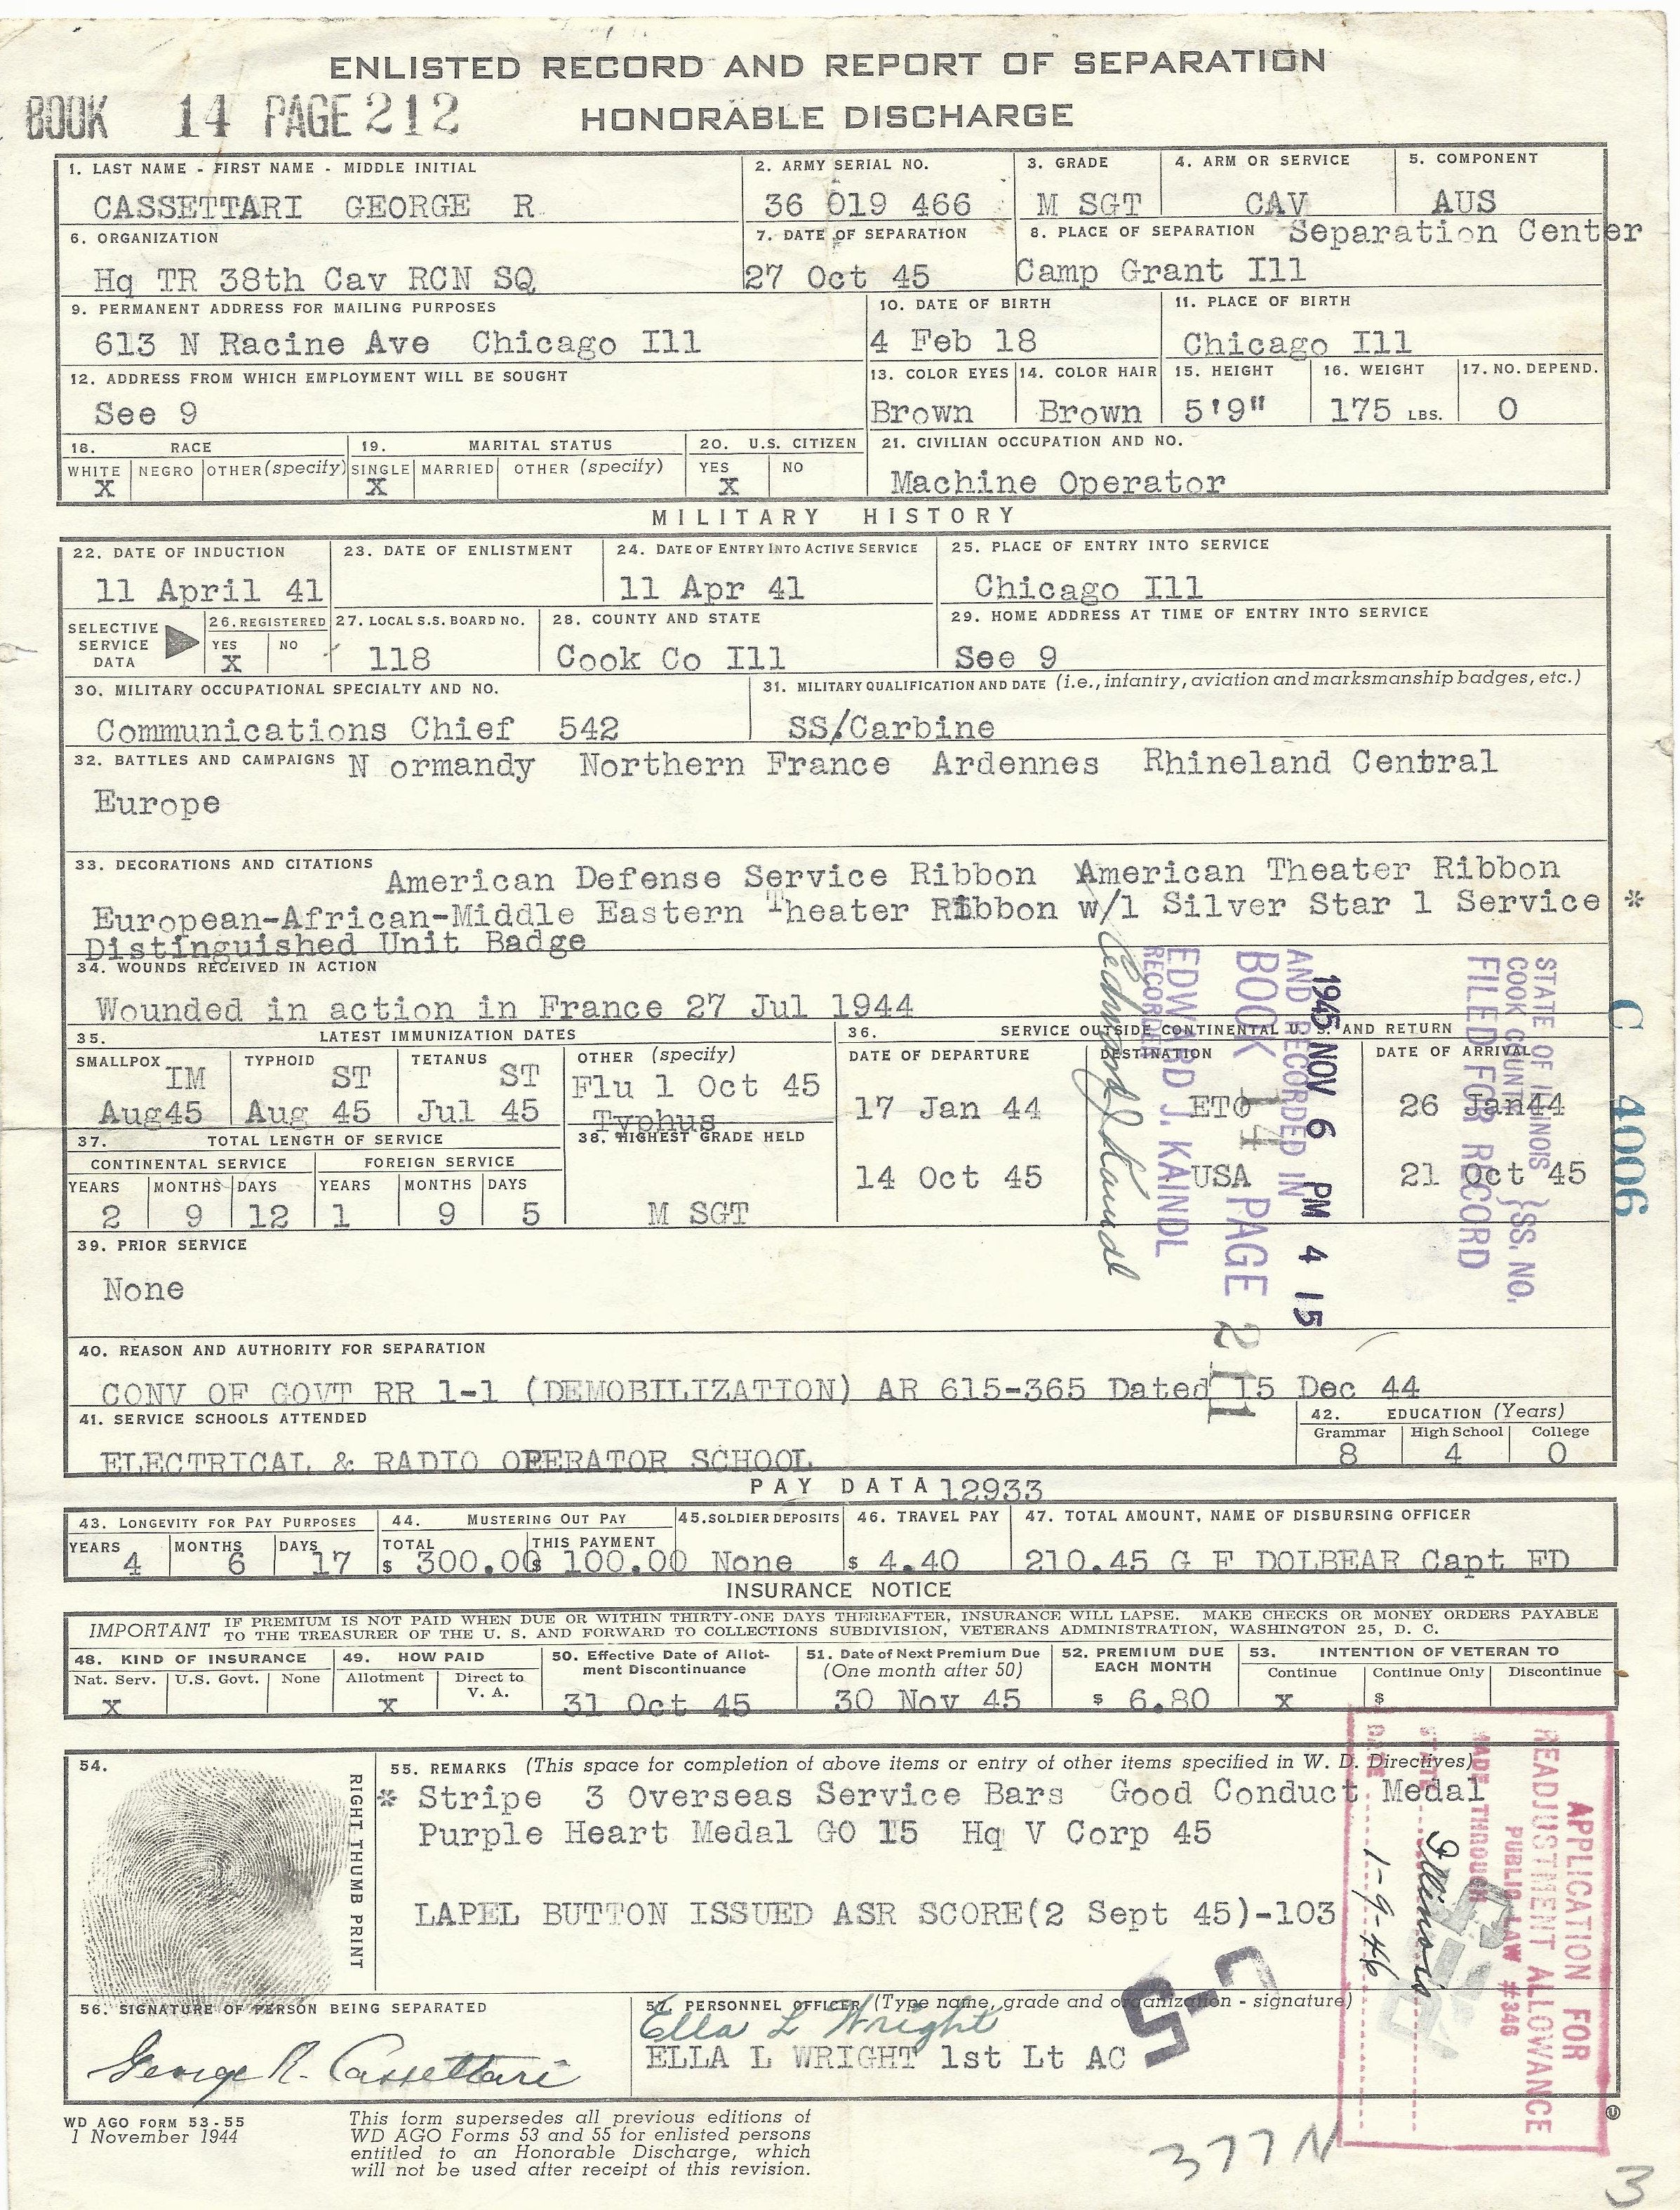 ENLISTED RECORD AND REPORT OF SEPARATION
BOOK 14 PAGE 212
HONORABLE DISCHARGE
1. LAST NAME - FIRST NAME - MIDDLE INITIAL
2. ARMY SERIAL NO.
3. GRADE
4. ARM OR SERVICE
5. COMPONENT
CASSETTARI GEORGE R
36 019 466
M SGT
CAV
AUS
6. ORGANIZATION
7. DATE OF SEPARATION
8. PLACE OF SEPARATION Separation Center
Hq TR 38th Cav RCN SQ
27 Oct 45
Camp Grant Ill
9. PERMANENT ADDRESS FOR MAILING PURPOSES
10. DATE OF BIRTH
11. PLACE OF BIRTH
613 N Racine Ave Chicago Ill
4 Feb 18
Chicago Ill
12. ADDRESS FROM WHICH EMPLOYMENT WILL BE SOUGHT
13. COLOR EYES
14. COLOR HAIR
15. HEIGHT
16. WEIGHT
17. NO. DEPEND.
See 9
Brown
Brown
5'9"
175 LBS.
0
18. RACE
19. MARITAL STATUS
20. U.S. CITIZEN
21. CIVILIAN OCCUPATION AND NO.
WHITE NEGRO OTHER (specify) SINGLE MARRIED OTHER (specify) YES NO
X X X
Machine Operator
MILITARY HISTORY
22. DATE OF INDUCTION
23. DATE OF ENLISTMENT
24. DATE OF ENTRY INTO ACTIVE SERVICE
25. PLACE OF ENTRY INTO SERVICE
11 April 41
11 Apr 41
Chicago Ill
SELECTIVE SERVICE DATA
26. REGISTERED
27. LOCAL S.S. BOARD NO.
28. COUNTY AND STATE
29. HOME ADDRESS AT TIME OF ENTRY INTO SERVICE
YES NO
X
118
Cook Co Ill
See 9
30. MILITARY OCCUPATIONAL SPECIALTY AND NO.
31. MILITARY QUALIFICATION AND DATE (i.e., infantry, aviation and marksmanship badges, etc.)
Communications Chief 542
SS/Carbine
32. BATTLES AND CAMPAIGNS N ormandy Northern France Ardennes Rhineland Central
Europe
33. DECORATIONS AND CITATIONS American Defense Service Ribbon American Theater Ribbon
European-African-Middle Eastern Theater Ribbon w/1 Silver Star 1 Service *
Distinguished Unit Badge
34. WOUNDS RECEIVED IN ACTION
Wounded in action in France 27 Jul 1944
35. LATEST IMMUNIZATION DATES
36. SERVICE OUTSIDE CONTINENTAL U. S. AND RETURN
SMALLPOX IM
TYPHOID ST
TETANUS ST
OTHER (specify)
DATE OF DEPARTURE
DESTINATION
DATE OF ARRIVAL
Aug45
Aug 45
Jul 45
Flu 1 Oct 45
Typhus
17 Jan 44
ETO
26 Jan44
37. TOTAL LENGTH OF SERVICE
38. HIGHEST GRADE HELD
CONTINENTAL SERVICE
FOREIGN SERVICE
YEARS MONTHS DAYS YEARS MONTHS DAYS
2 9 12 1 9 5
M SGT
14 Oct 45
USA
21 Oct 45
39. PRIOR SERVICE
None
STATE OF ILLINOIS
COOK COUNTY } SS. NO.
FILED FOR RECORD
1945 NOV 6 PM 4 15
AND RECORDED IN
BOOK 14 PAGE 211
EDWARD J. KAINDL
RECORDER
C 4006
40. REASON AND AUTHORITY FOR SEPARATION
CONV OF GOVT RR 1-1 (DEMOBILIZATION) AR 615-365 Dated 15 Dec 44
41. SERVICE SCHOOLS ATTENDED
42. EDUCATION (Years)
Grammar High School College
ELECTRICAL & RADIO OPERATOR SCHOOL
8 4 0
PAY DATA 12933
43. LONGEVITY FOR PAY PURPOSES
44. MUSTERING OUT PAY
45. SOLDIER DEPOSITS
46. TRAVEL PAY
47. TOTAL AMOUNT, NAME OF DISBURSING OFFICER
YEARS MONTHS DAYS TOTAL THIS PAYMENT
4 6 17 $ 300.00 $ 100.00 None $ 4.40 210.45 G F DOLBEAR Capt FD
INSURANCE NOTICE
IMPORTANT IF PREMIUM IS NOT PAID WHEN DUE OR WITHIN THIRTY-ONE DAYS THEREAFTER, INSURANCE WILL LAPSE. MAKE CHECKS OR MONEY ORDERS PAYABLE
TO THE TREASURER OF THE U. S. AND FORWARD TO COLLECTIONS SUBDIVISION, VETERANS ADMINISTRATION, WASHINGTON 25, D. C.
48. KIND OF INSURANCE
49. HOW PAID
50. Effective Date of Allotment Discontinuance
51. Date of Next Premium Due
(One month after 50)
52. PREMIUM DUE EACH MONTH
53. INTENTION OF VETERAN TO
Nat. Serv. U.S. Govt. None Allotment Direct to V. A.
Continue Continue Only Discontinue
X X 31 Oct 45 30 Nov 45 $ 6.80 X $
54.
RIGHT THUMB PRINT
55. REMARKS (This space for completion of above items or entry of other items specified in W. D. Directives)
* Stripe 3 Overseas Service Bars Good Conduct Medal
Purple Heart Medal GO 15 Hq V Corp 45
LAPEL BUTTON ISSUED ASR SCORE(2 Sept 45)-103
APPLICATION FOR
READJUSTMENT ALLOWANCE
PUBLIC LAW #346
MADE THROUGH
STATE Illinois
DATE 1-9-46
C-5
56. SIGNATURE OF PERSON BEING SEPARATED
57. PERSONNEL OFFICER (Type name, grade and organization - signature)
George R. Cassettari
Ella L Wright
ELLA L WRIGHT 1st Lt AC
WD AGO FORM 53-55
1 November 1944
This form supersedes all previous editions of
WD AGO Forms 53 and 55 for enlisted persons
entitled to an Honorable Discharge, which
will not be used after receipt of this revision.
377N
3